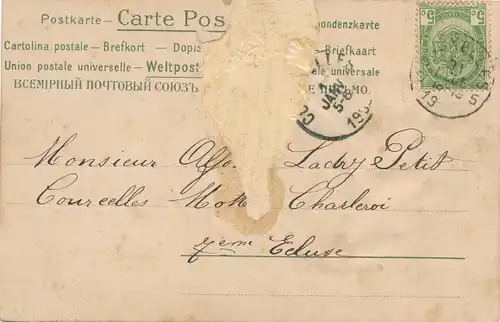 Postkarte - Carte Pos ondenzkarte
Cartolina postale - Brefkort - Dopis Briefkaart
Union postale universelle - Weltpost tale universale
ВСЕМІРНЫЙ ПОЧТОВЫЙ СОЮЗЪ. Е ПИСЬМО.
5 5
JANV
5-6
19
Monsieur Alfo Lachy Petit
Courcelles Mott Charleroi
7eme Ecluse